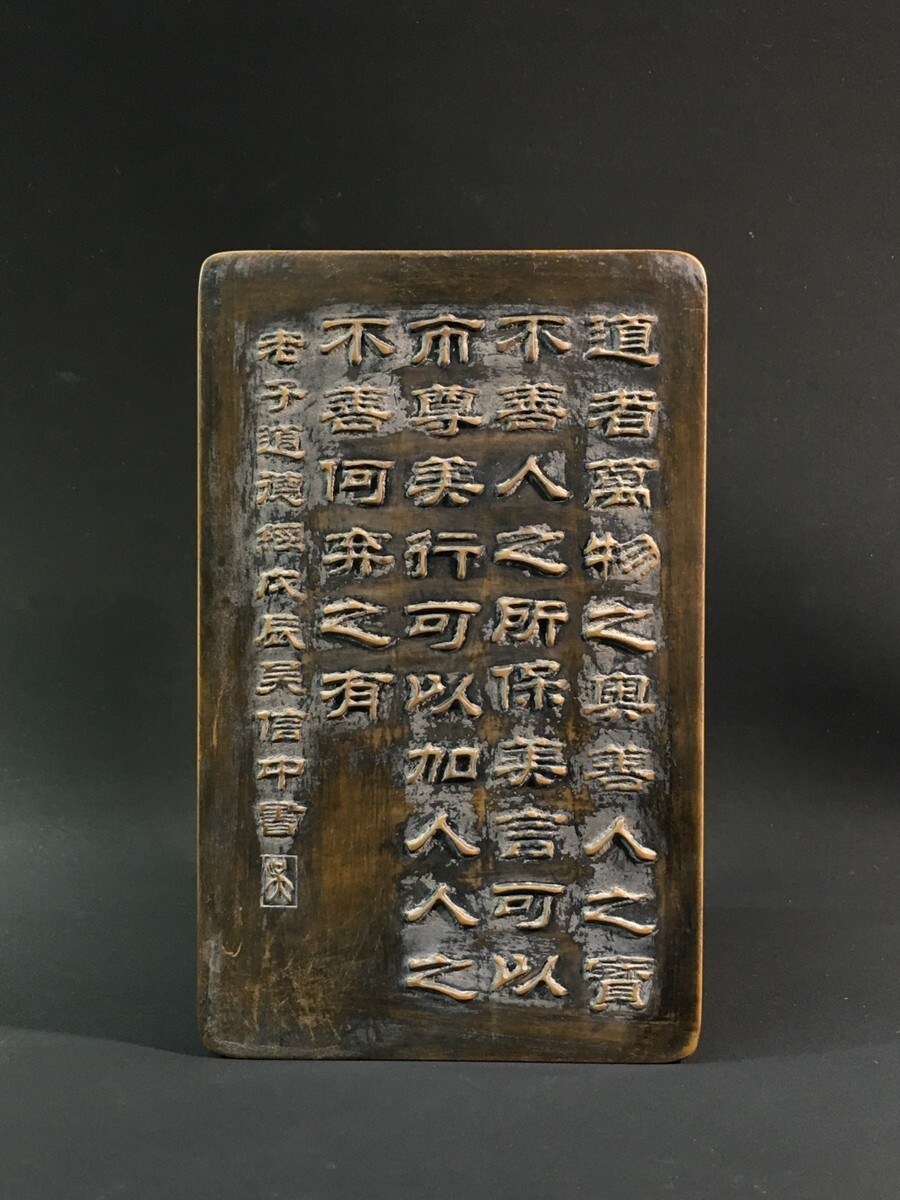 道者萬物之奥善人之寶
不善人之所保美言可以
市尊美行可以加人人之
不善何弃之有
老子道德經戊辰吴信中書
吴